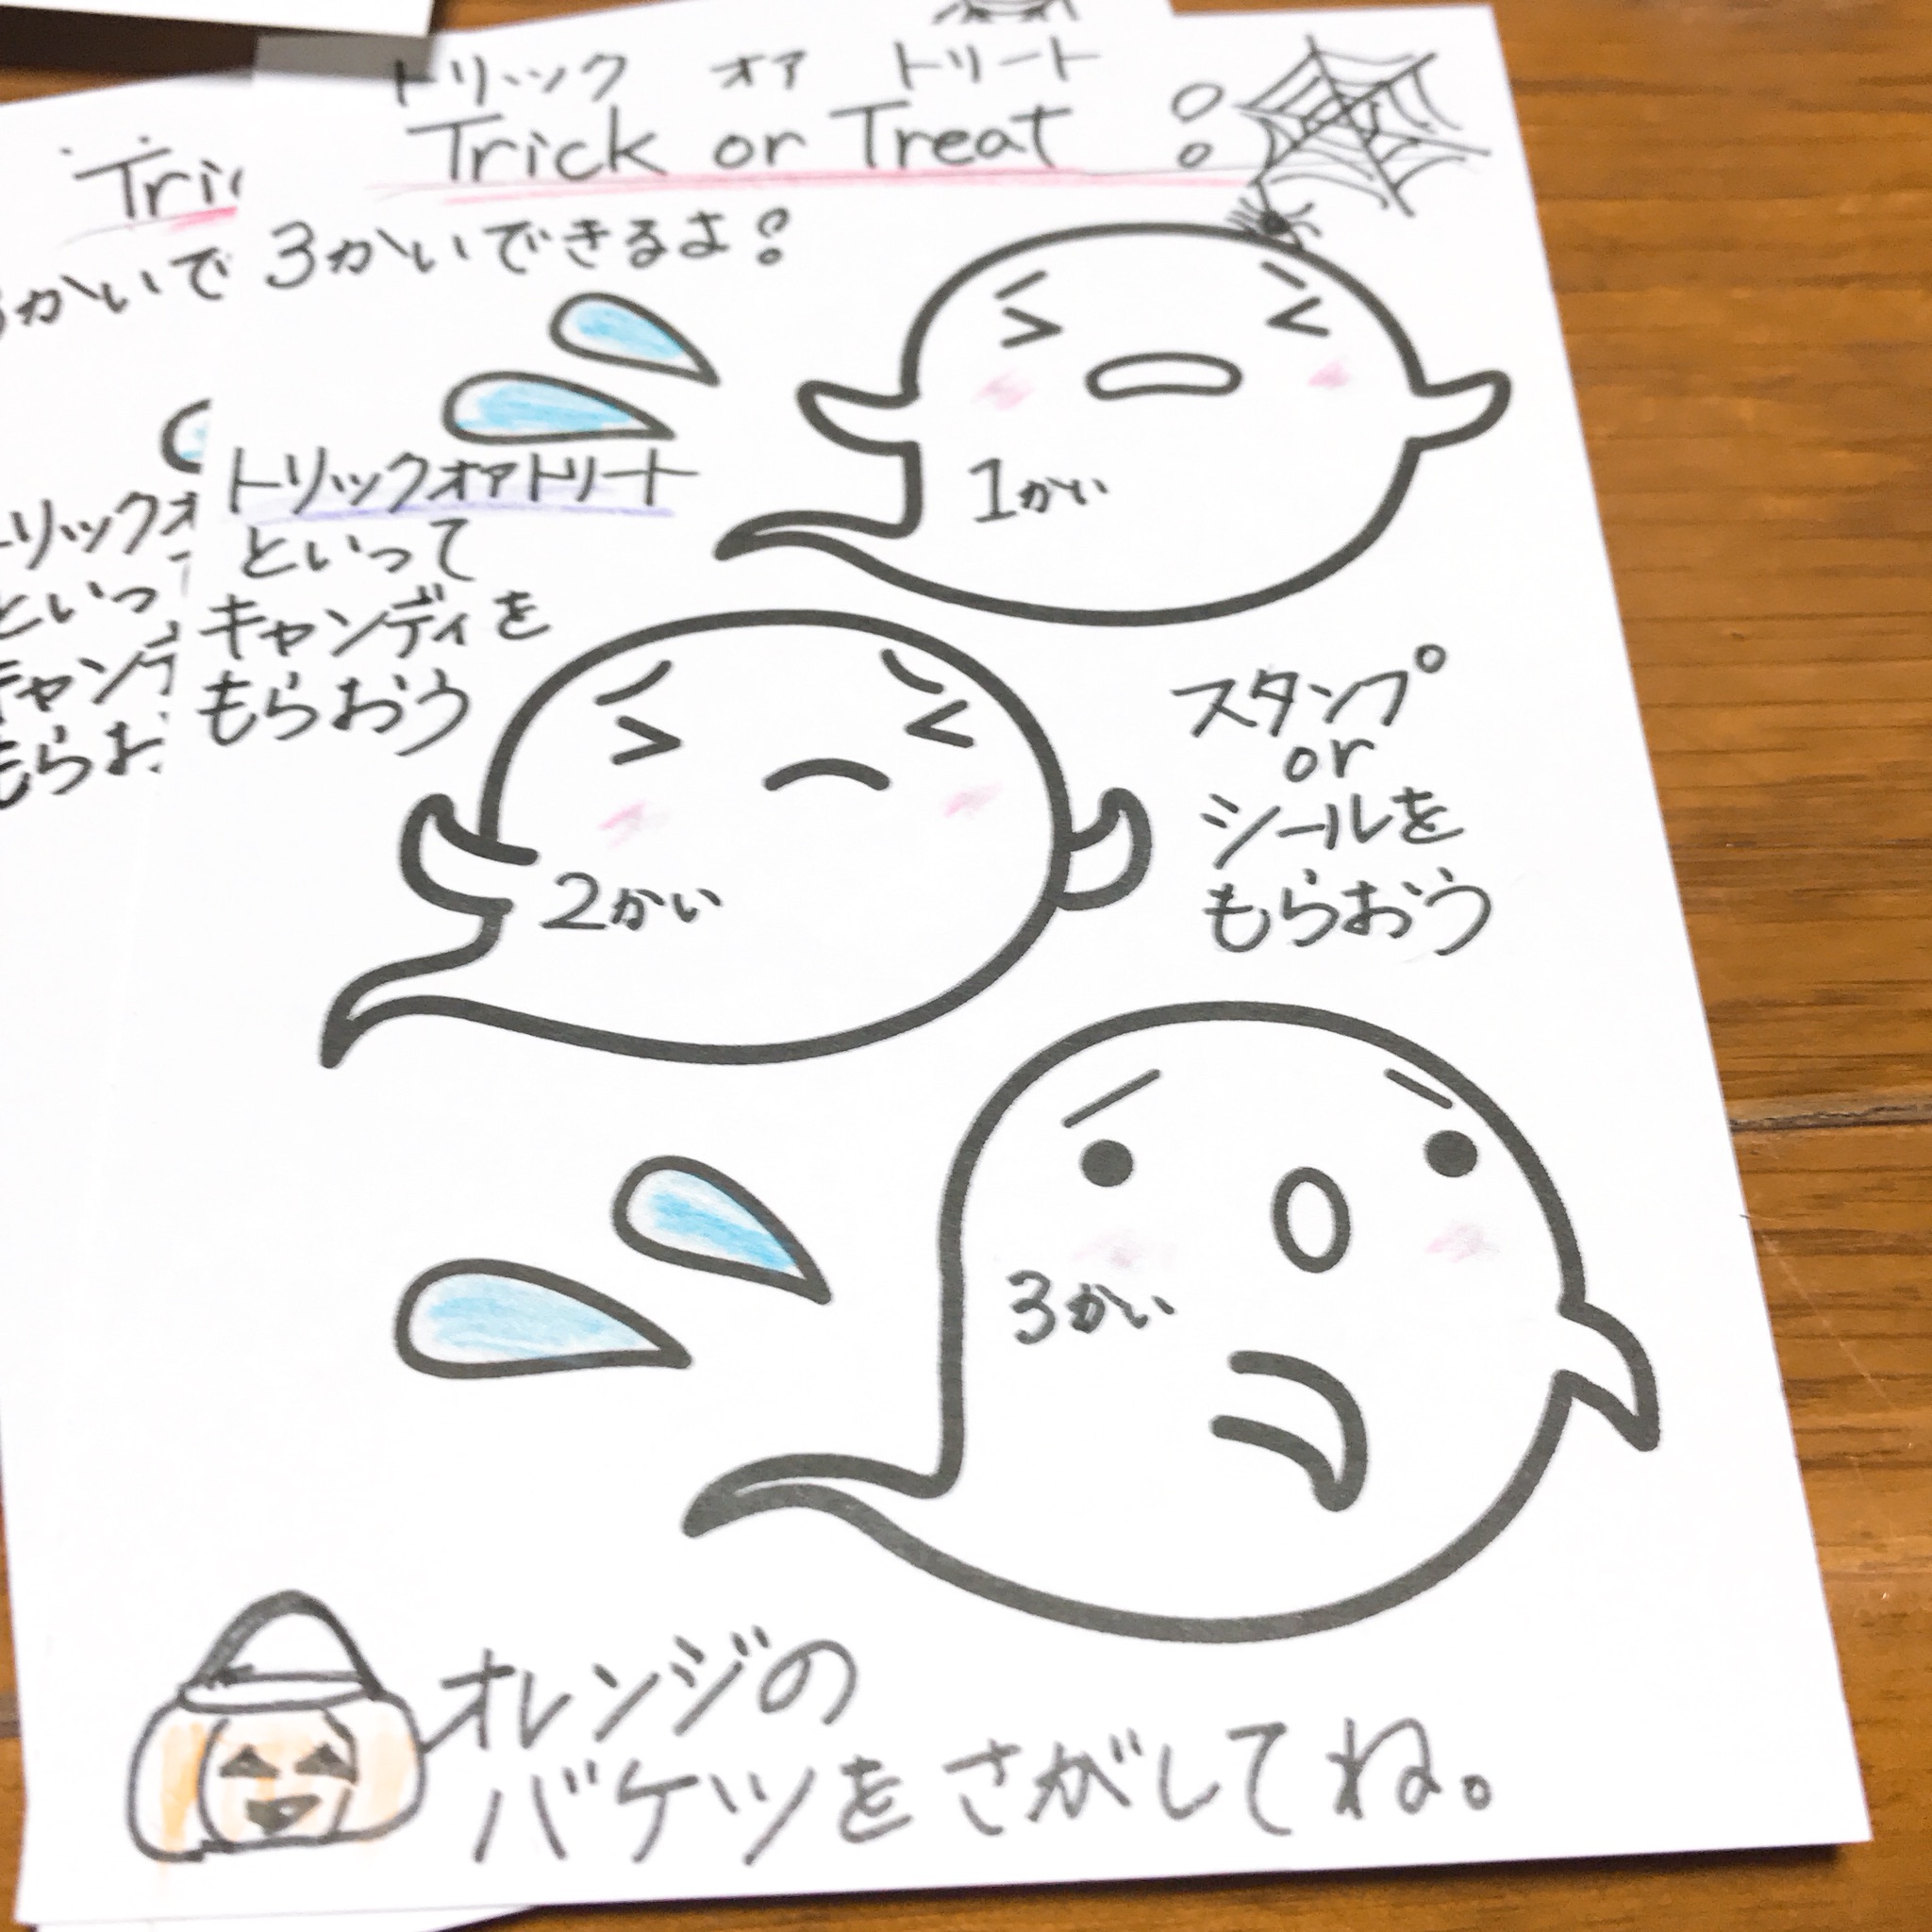 トリック オア トリート
Trick or Treat!
3かいできるよ!
1かい
トリックオアトリート
といって
キャンディを
もらおう
2かい
スタンプ
or
シールを
もらおう
3かい
オレンジの
バケツをさがしてね。
Tri
かいで
トリックオ
といっ
キャンデ
もらお